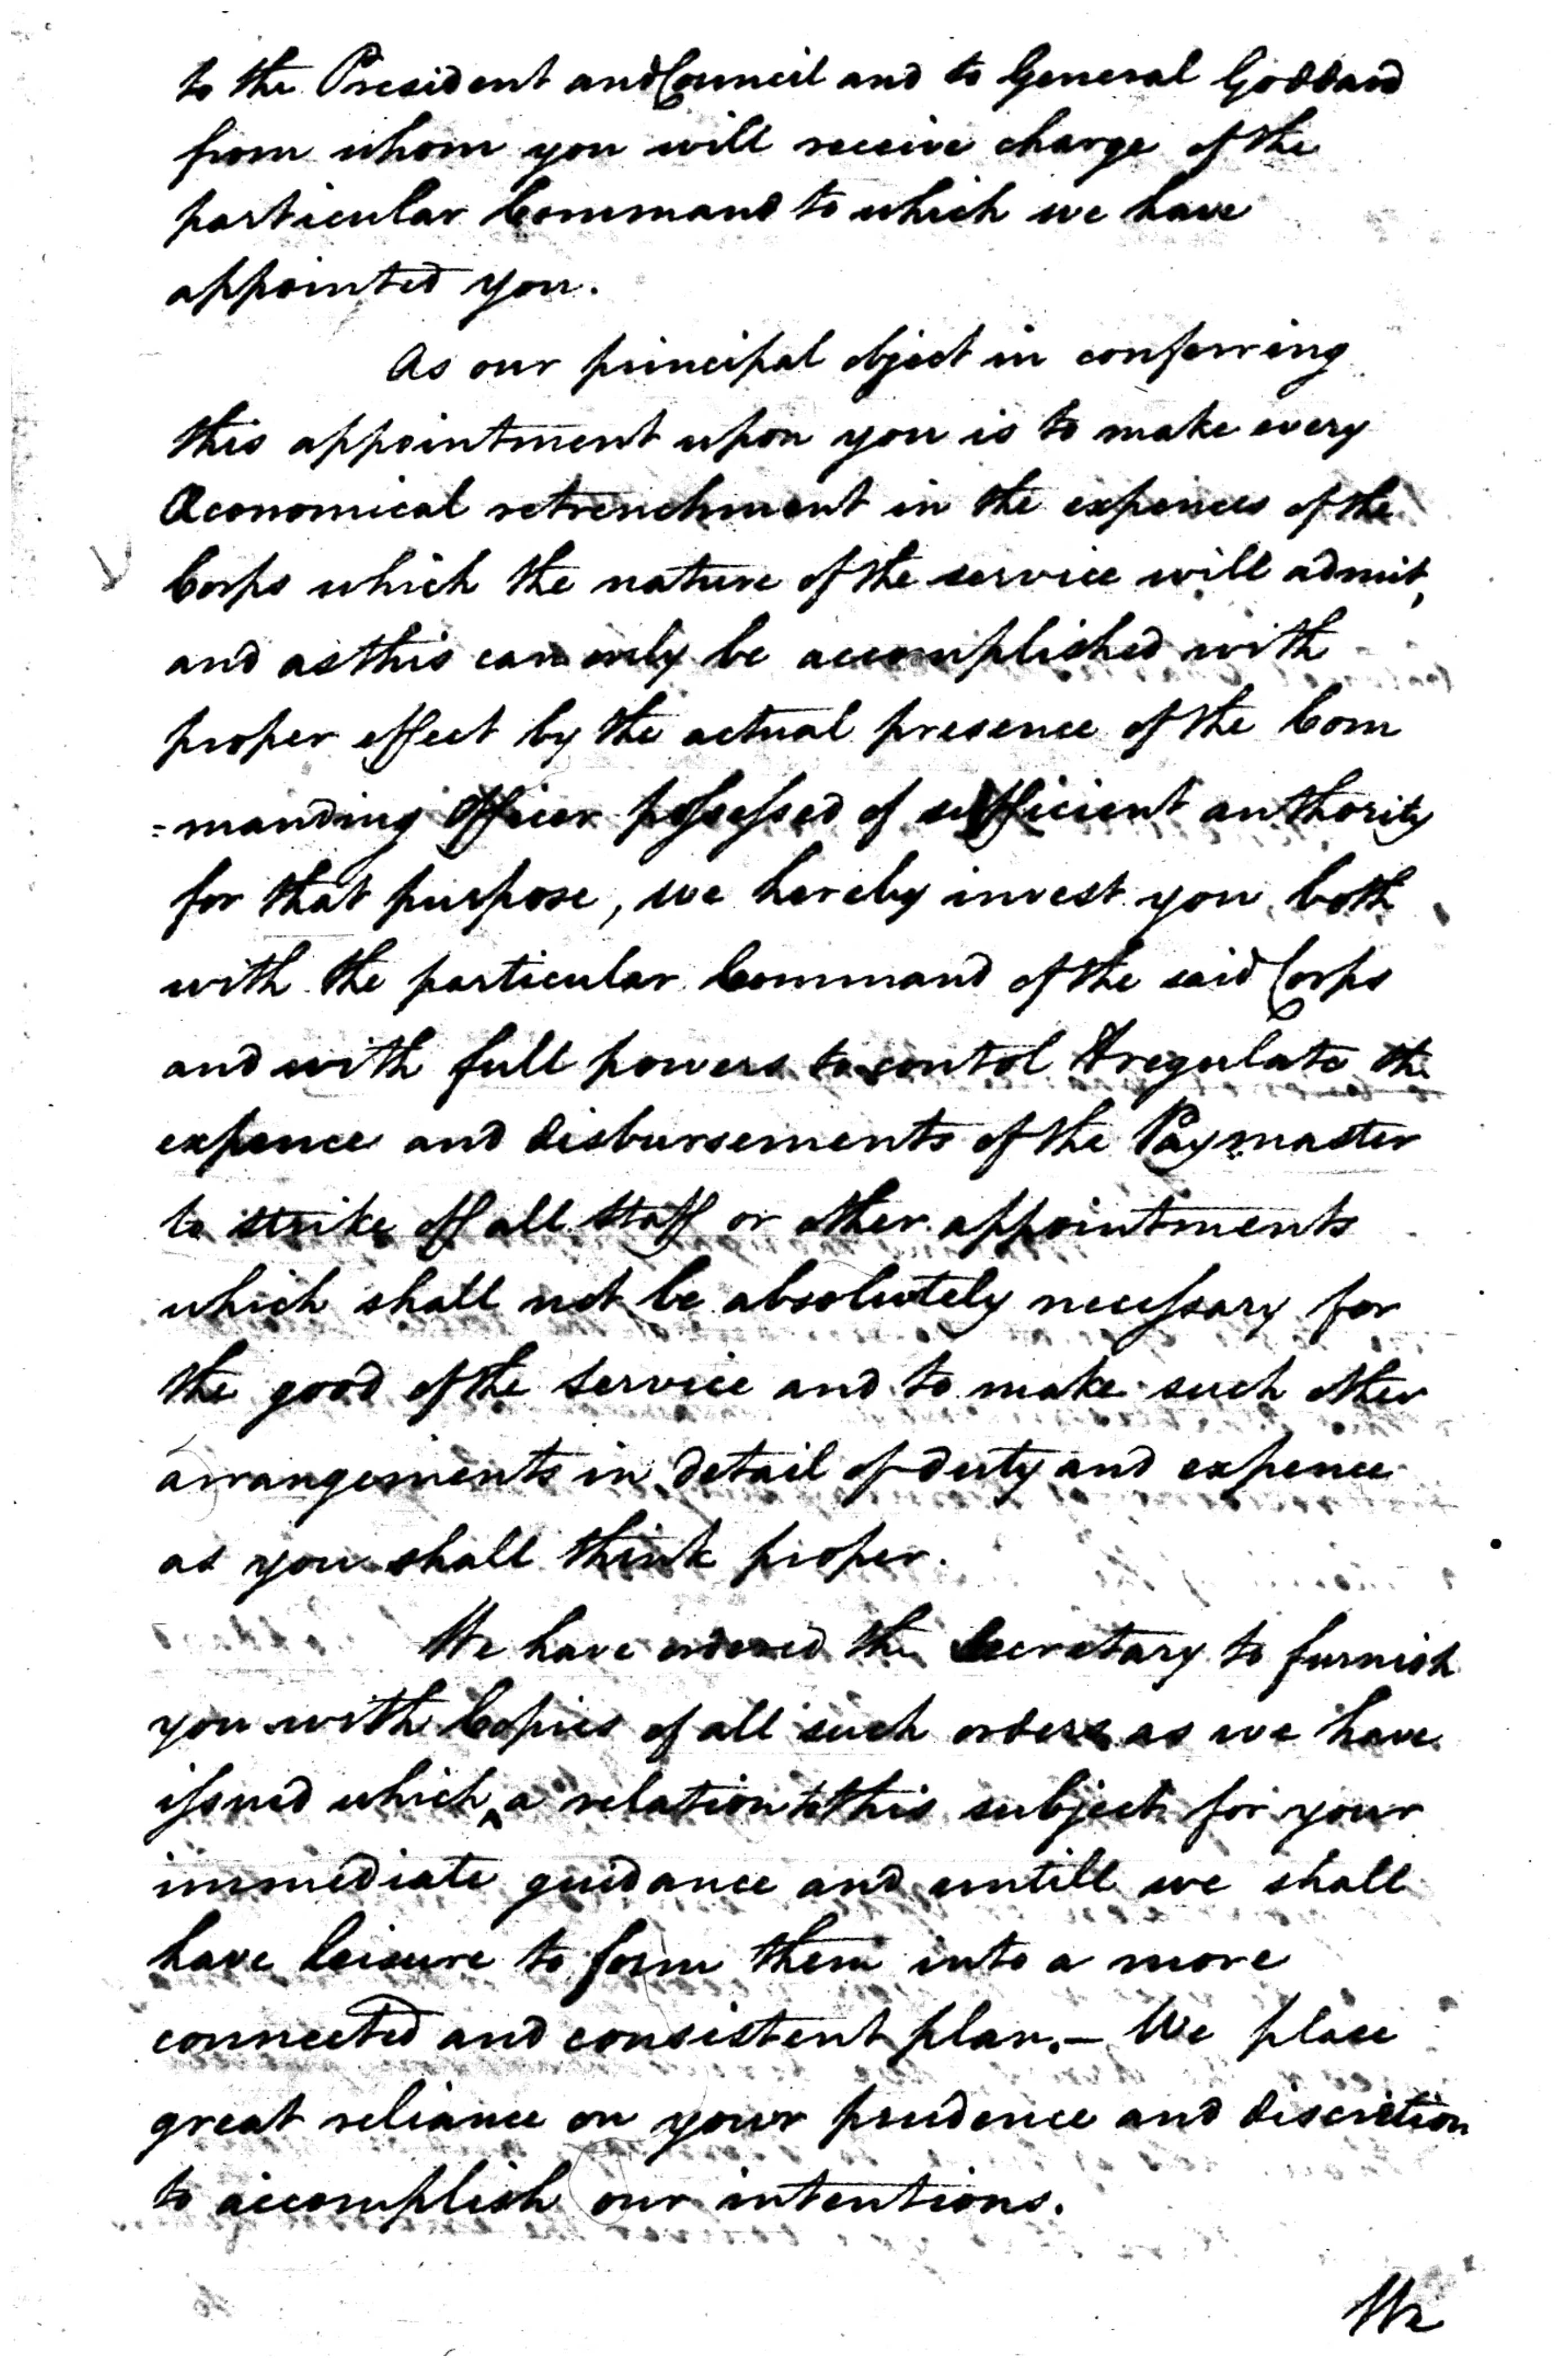 to the President and Council and to General Goddard
from whom you will receive charge of the
particular Command to which we have
appointed you.
As our principal object in conferring
this appointment upon you is to make every
Œconomical retrenchment in the expences of the
Corps which the nature of the service will admit,
and as this can only be accomplished with
proper effect by the actual presence of the Com
=manding Officer possessed of sufficient authority
for that purpose, we hereby invest you both
with the particular Command of the said Corps
and with full powers to contol & regulate the
expence and disbursements of the Paymaster
to strike off all Staff or other appointments
which shall not be absolutely necessary for
the good of the Service and to make such other
arrangements in detail of duty and expence
as you shall think proper.
We have ordered the Secretary to furnish
you with Copies of all such orders as we have
issued which ‸ a relation to this subject for your
immediate guidance and untill we shall
have leisure to form them into a more
connected and consistent plan. — We place
great reliance on your prudence and discretion
to accomplish our intentions.
We